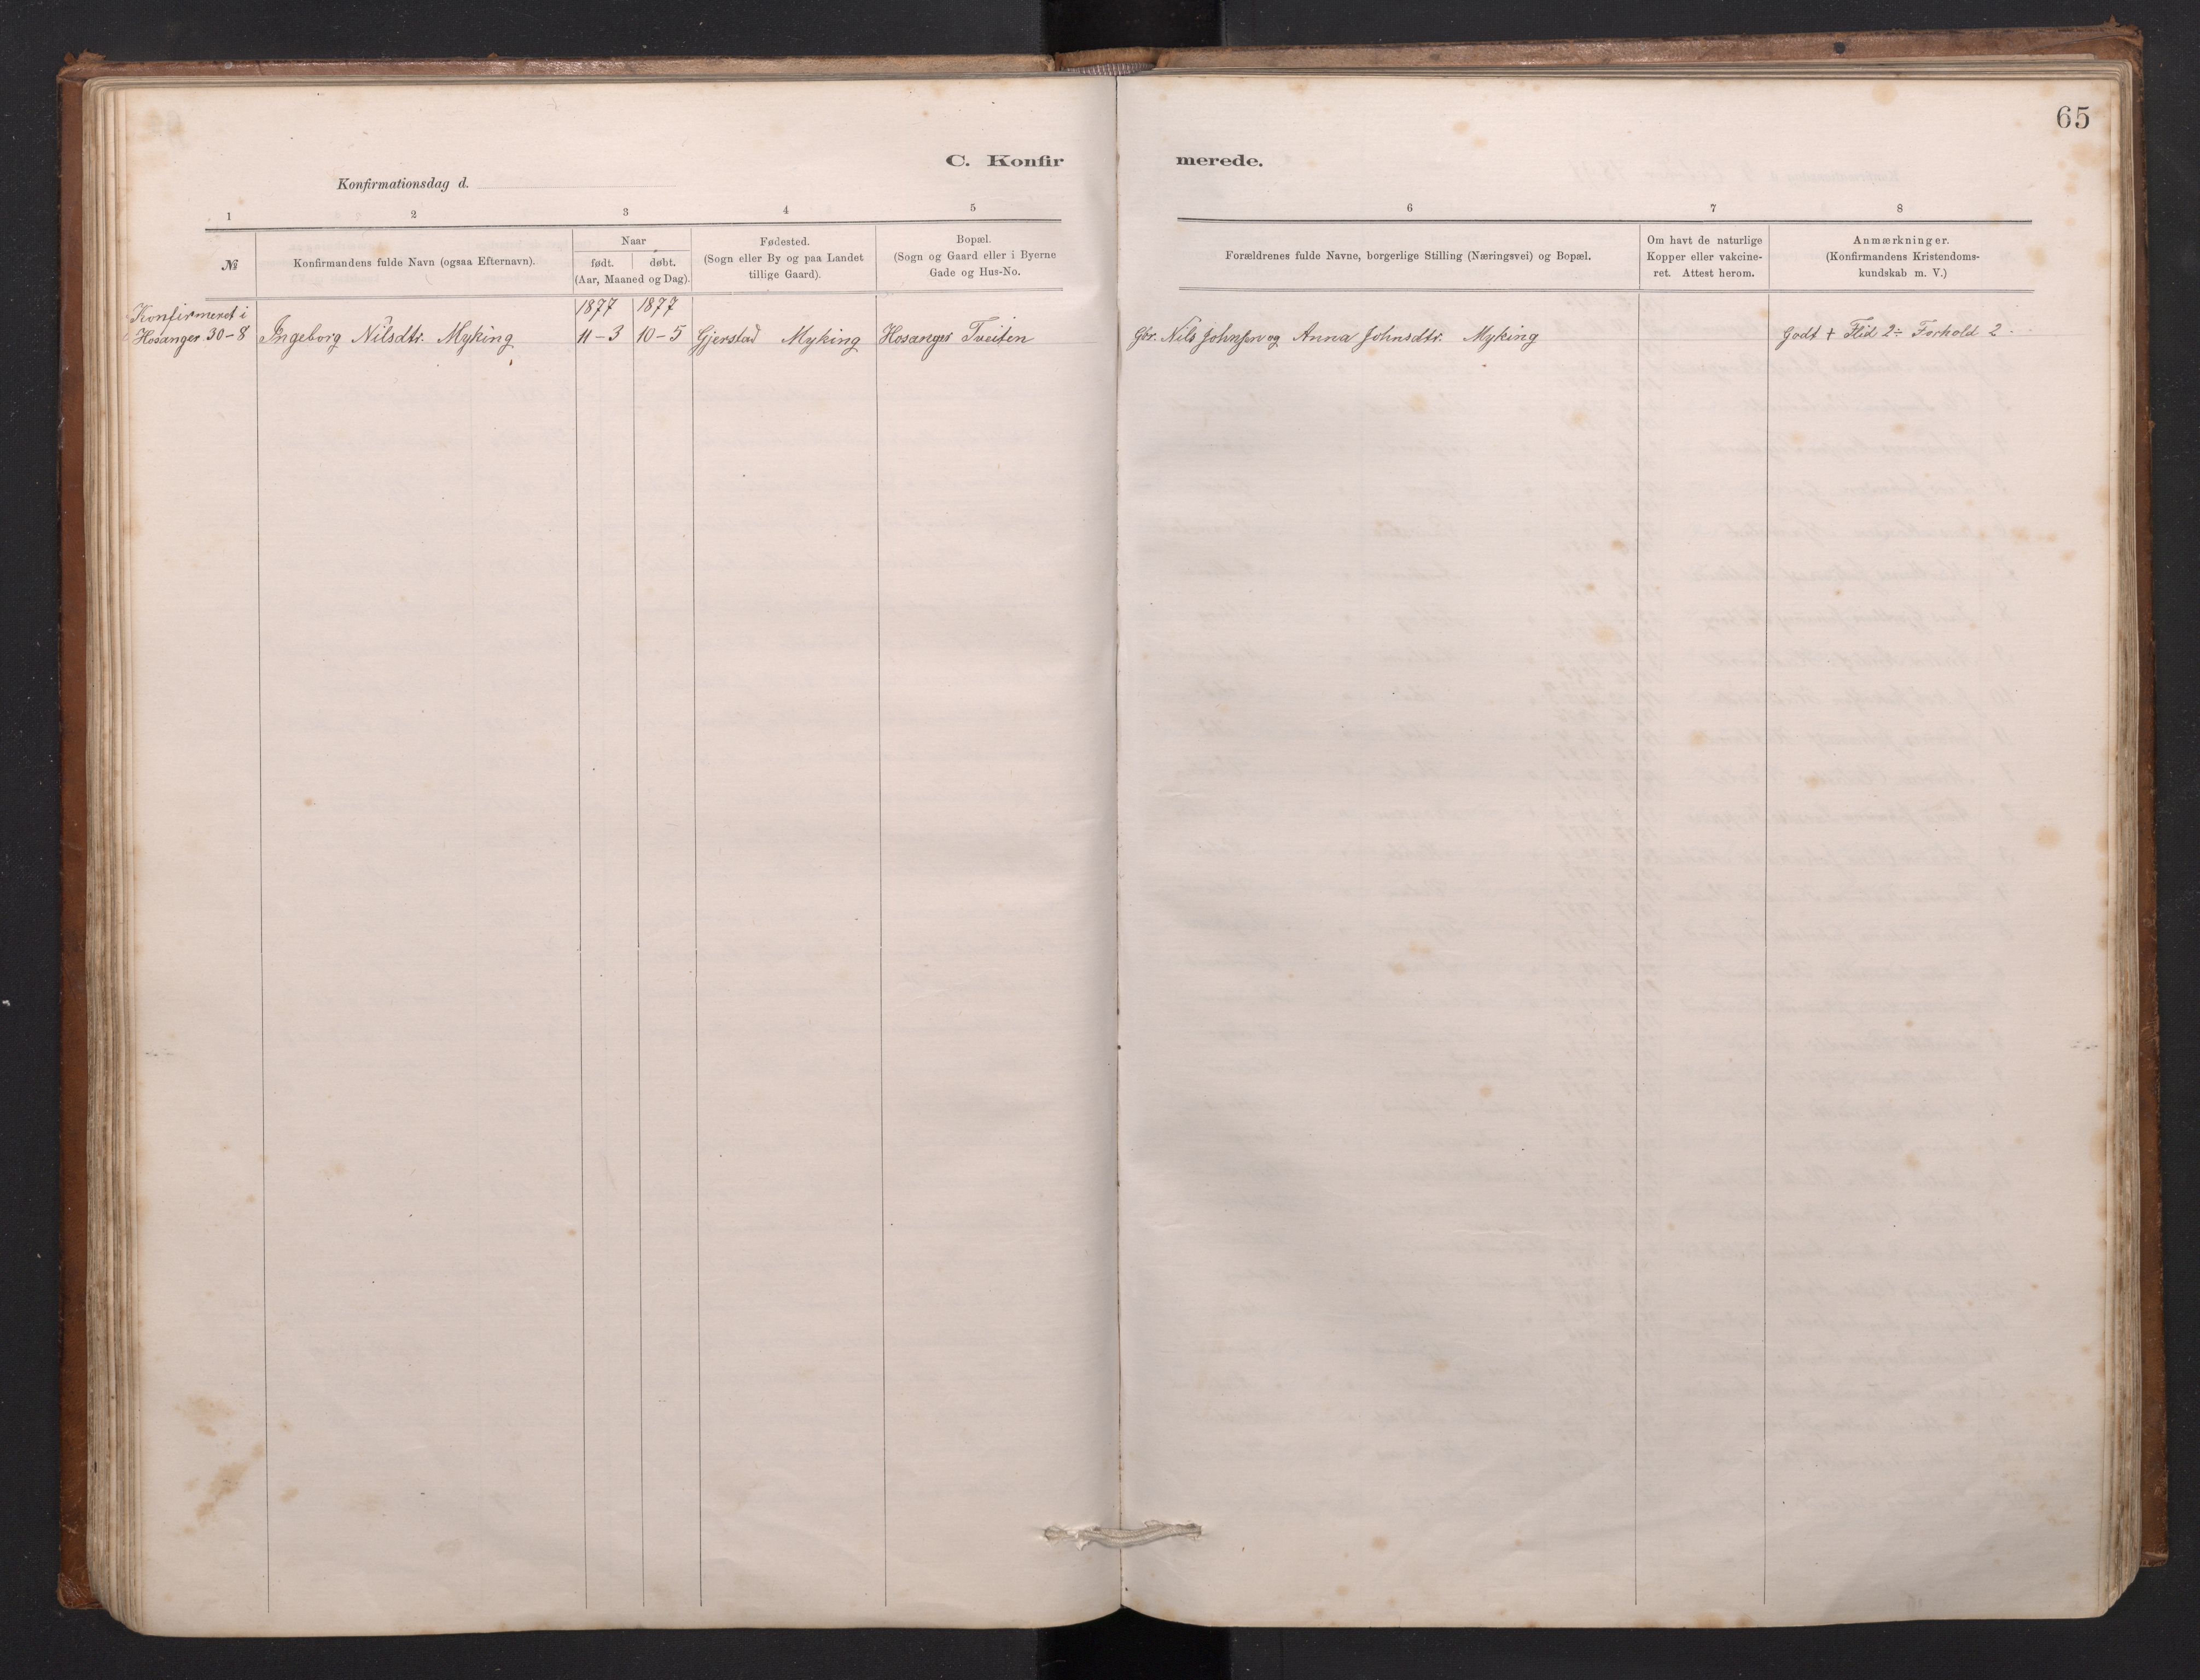 65
C. Konfirmerede.
Konfirmationsdag d.
1 2 3 4 5 6 7 8
№
Konfirmandens fulde Navn (ogsaa Efternavn).
Naar
født. døbt.
(Aar, Maaned og Dag).
Fødested.
(Sogn eller By og paa Landet
tillige Gaard).
Bopæl.
(Sogn og Gaard eller i Byerne
Gade og Hus-No.
Forældrenes fulde Navne, borgerlige Stilling (Næringsvei) og Bopæl.
Om havt de naturlige
Kopper eller vakcine-
ret. Attest herom.
Anmærkninger.
(Konfirmandens Kristendoms-
kundskab m. V.)
Konfirmeret i 1877 1877
Hosanger 30-8 Ingeborg Nilsdtr. Myking 11-3 10-5 Gjerstad Myking Hosanger Tveiten Gbr. Nils Johnsen og Anna Johnsdtr. Myking Godt + Flid 2÷ Forhold 2